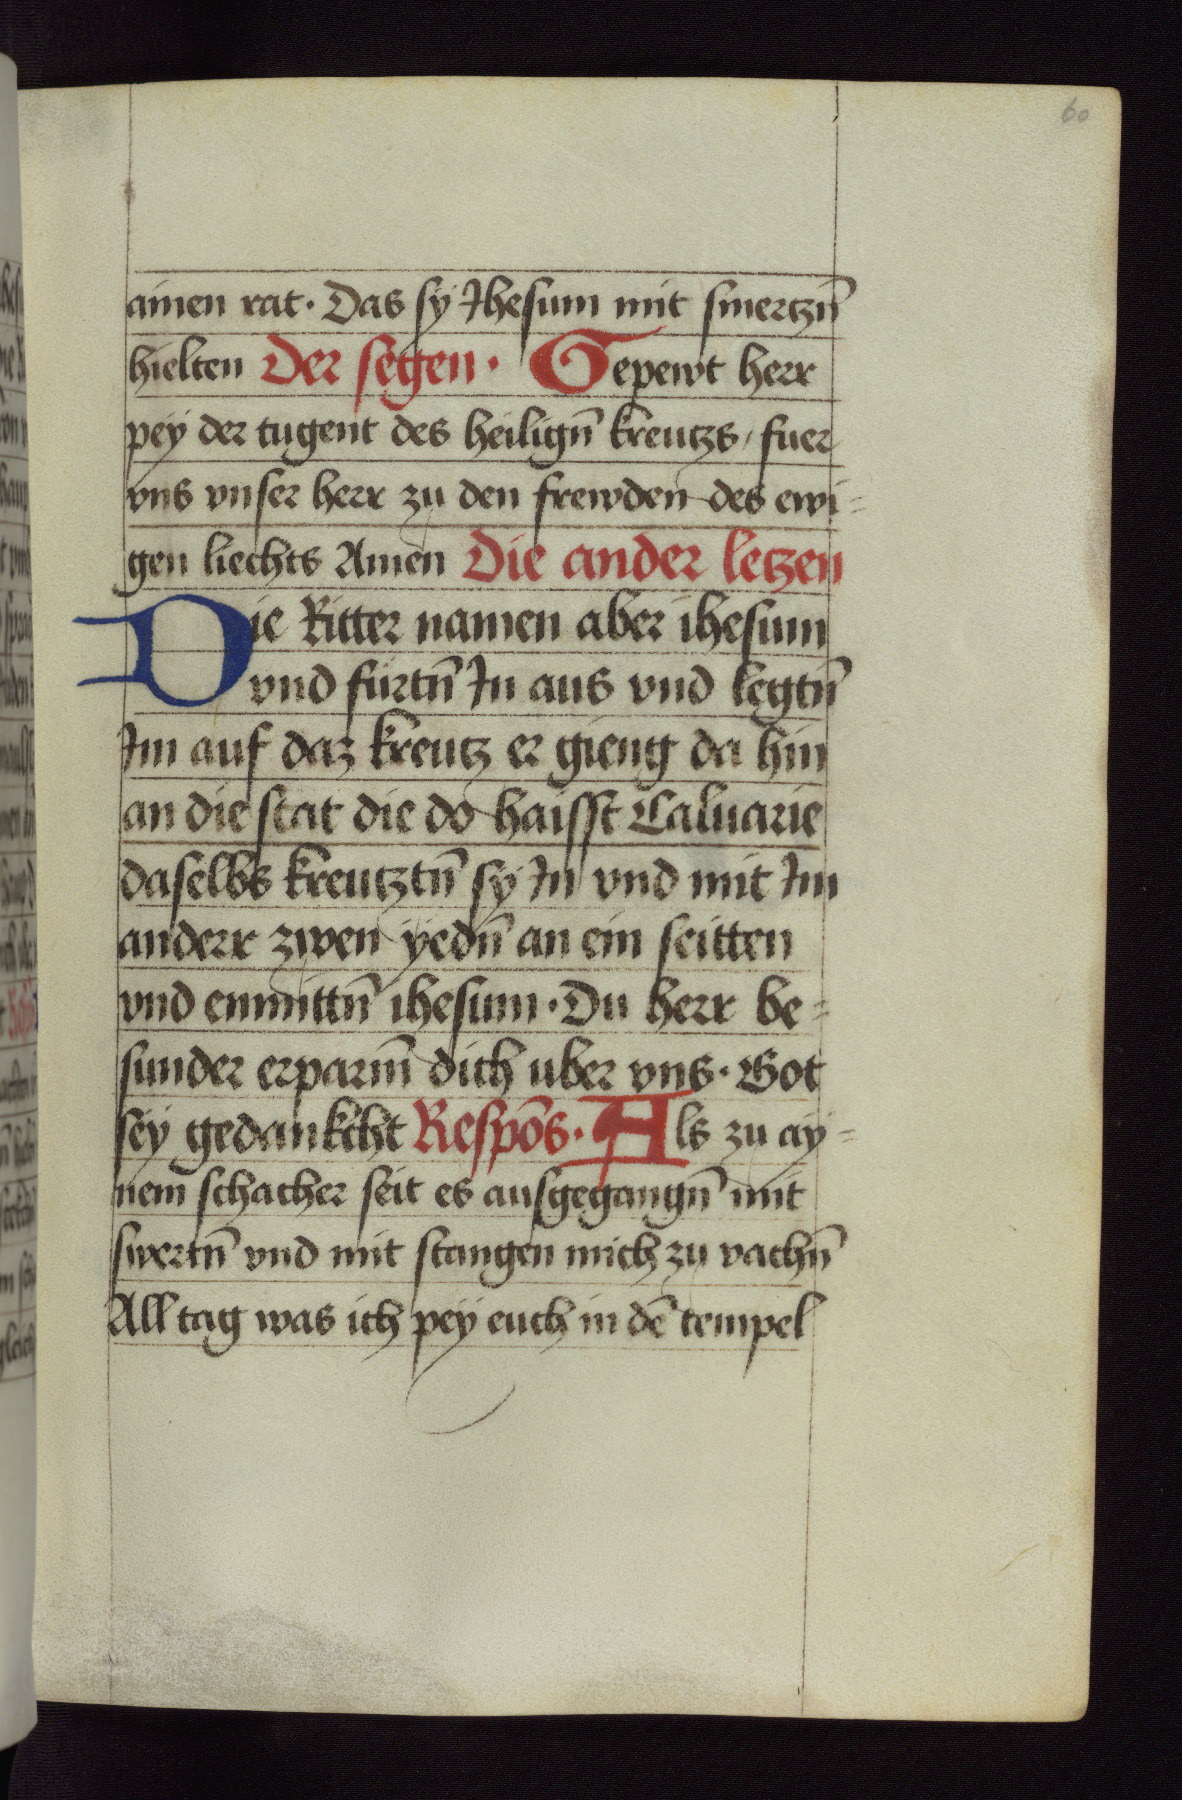 60
ainen rat · Das sy Jhesum mit smertzn̄
hielten Der segen · Gepewt herr
pey der tugent des heilign̄ kreutzs / fuer
vns vnser herr zu den frewden des ewi=
gen liechts Amen Die ander letzen
Die Ritter namen aber ihesum
vnd fürtn̄ Jn aus vnd legtn̄
Jm auf daz kreutz er gieng da hin
an die stat die do haisst Caluarie
daselbs kreutztn̄ sy Jn vnd mit Jm
anderr zwen yedn̄ an ein seitten
vnd enmittn̄ ihesum · Du herr be=
sunder erparm̄ dich uber vns · Got
sey gedankcht Respōs · Als zu ay=
nem schacher seit es ausgegangn̄ mit
swertn̄ vnd mit stangen mich zu vachn̄
All tag was ich pey euch in dē tempel